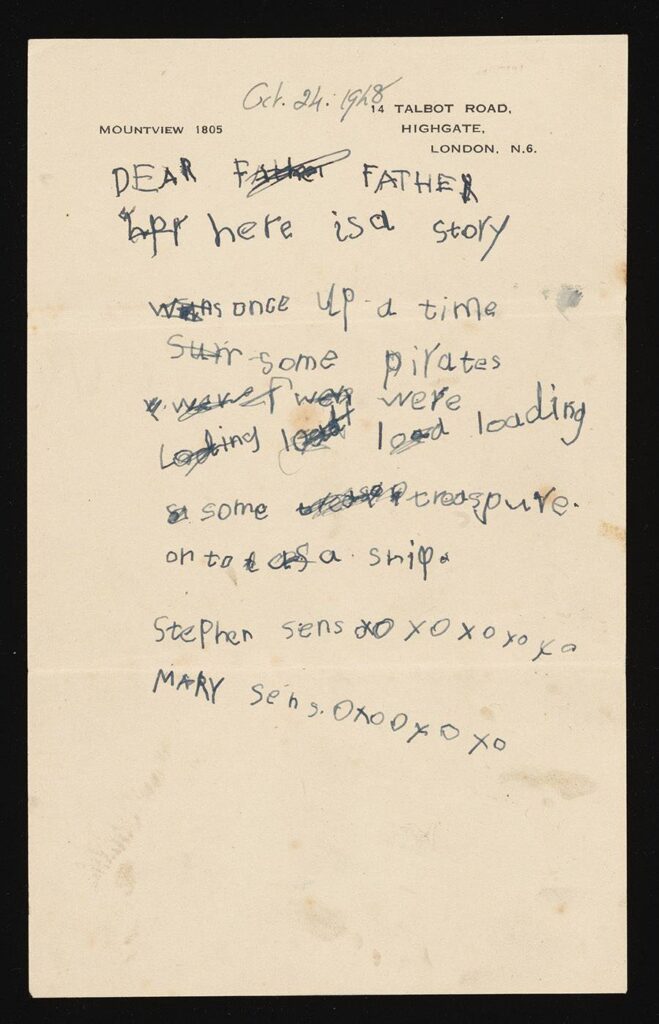 Oct. 24. 1948
14 TALBOT ROAD,
MOUNTVIEW 1805
HIGHGATE,
LONDON, N.6.
DEAR Father FATHER
here is a story
was once up a time
Surr some pirates
were were
Loading load loading
some treaspure.
on to a ship.
Stephen sens xo xo xo xo xo
MARY sens. oxooxoxo